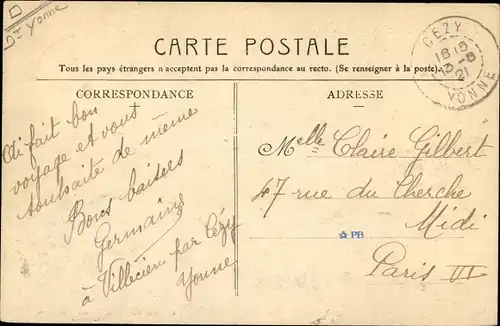 D
Dt Yonne
CARTE POSTALE
Tous les pays étrangers n acceptent pas la correspondance au recto. (Se renseigner à la poste).
CÉZY
18 15
13 -8
21
YONNE
CORRESPONDANCE
Ai fait bon
voyage et vous
souhaite de même
Bons baisers
Germaine
à Villecien par Cézy
Yonne
ADRESSE
Melle Claire Gilbert
47 rue du Cherche
Midi
PB
Paris VI